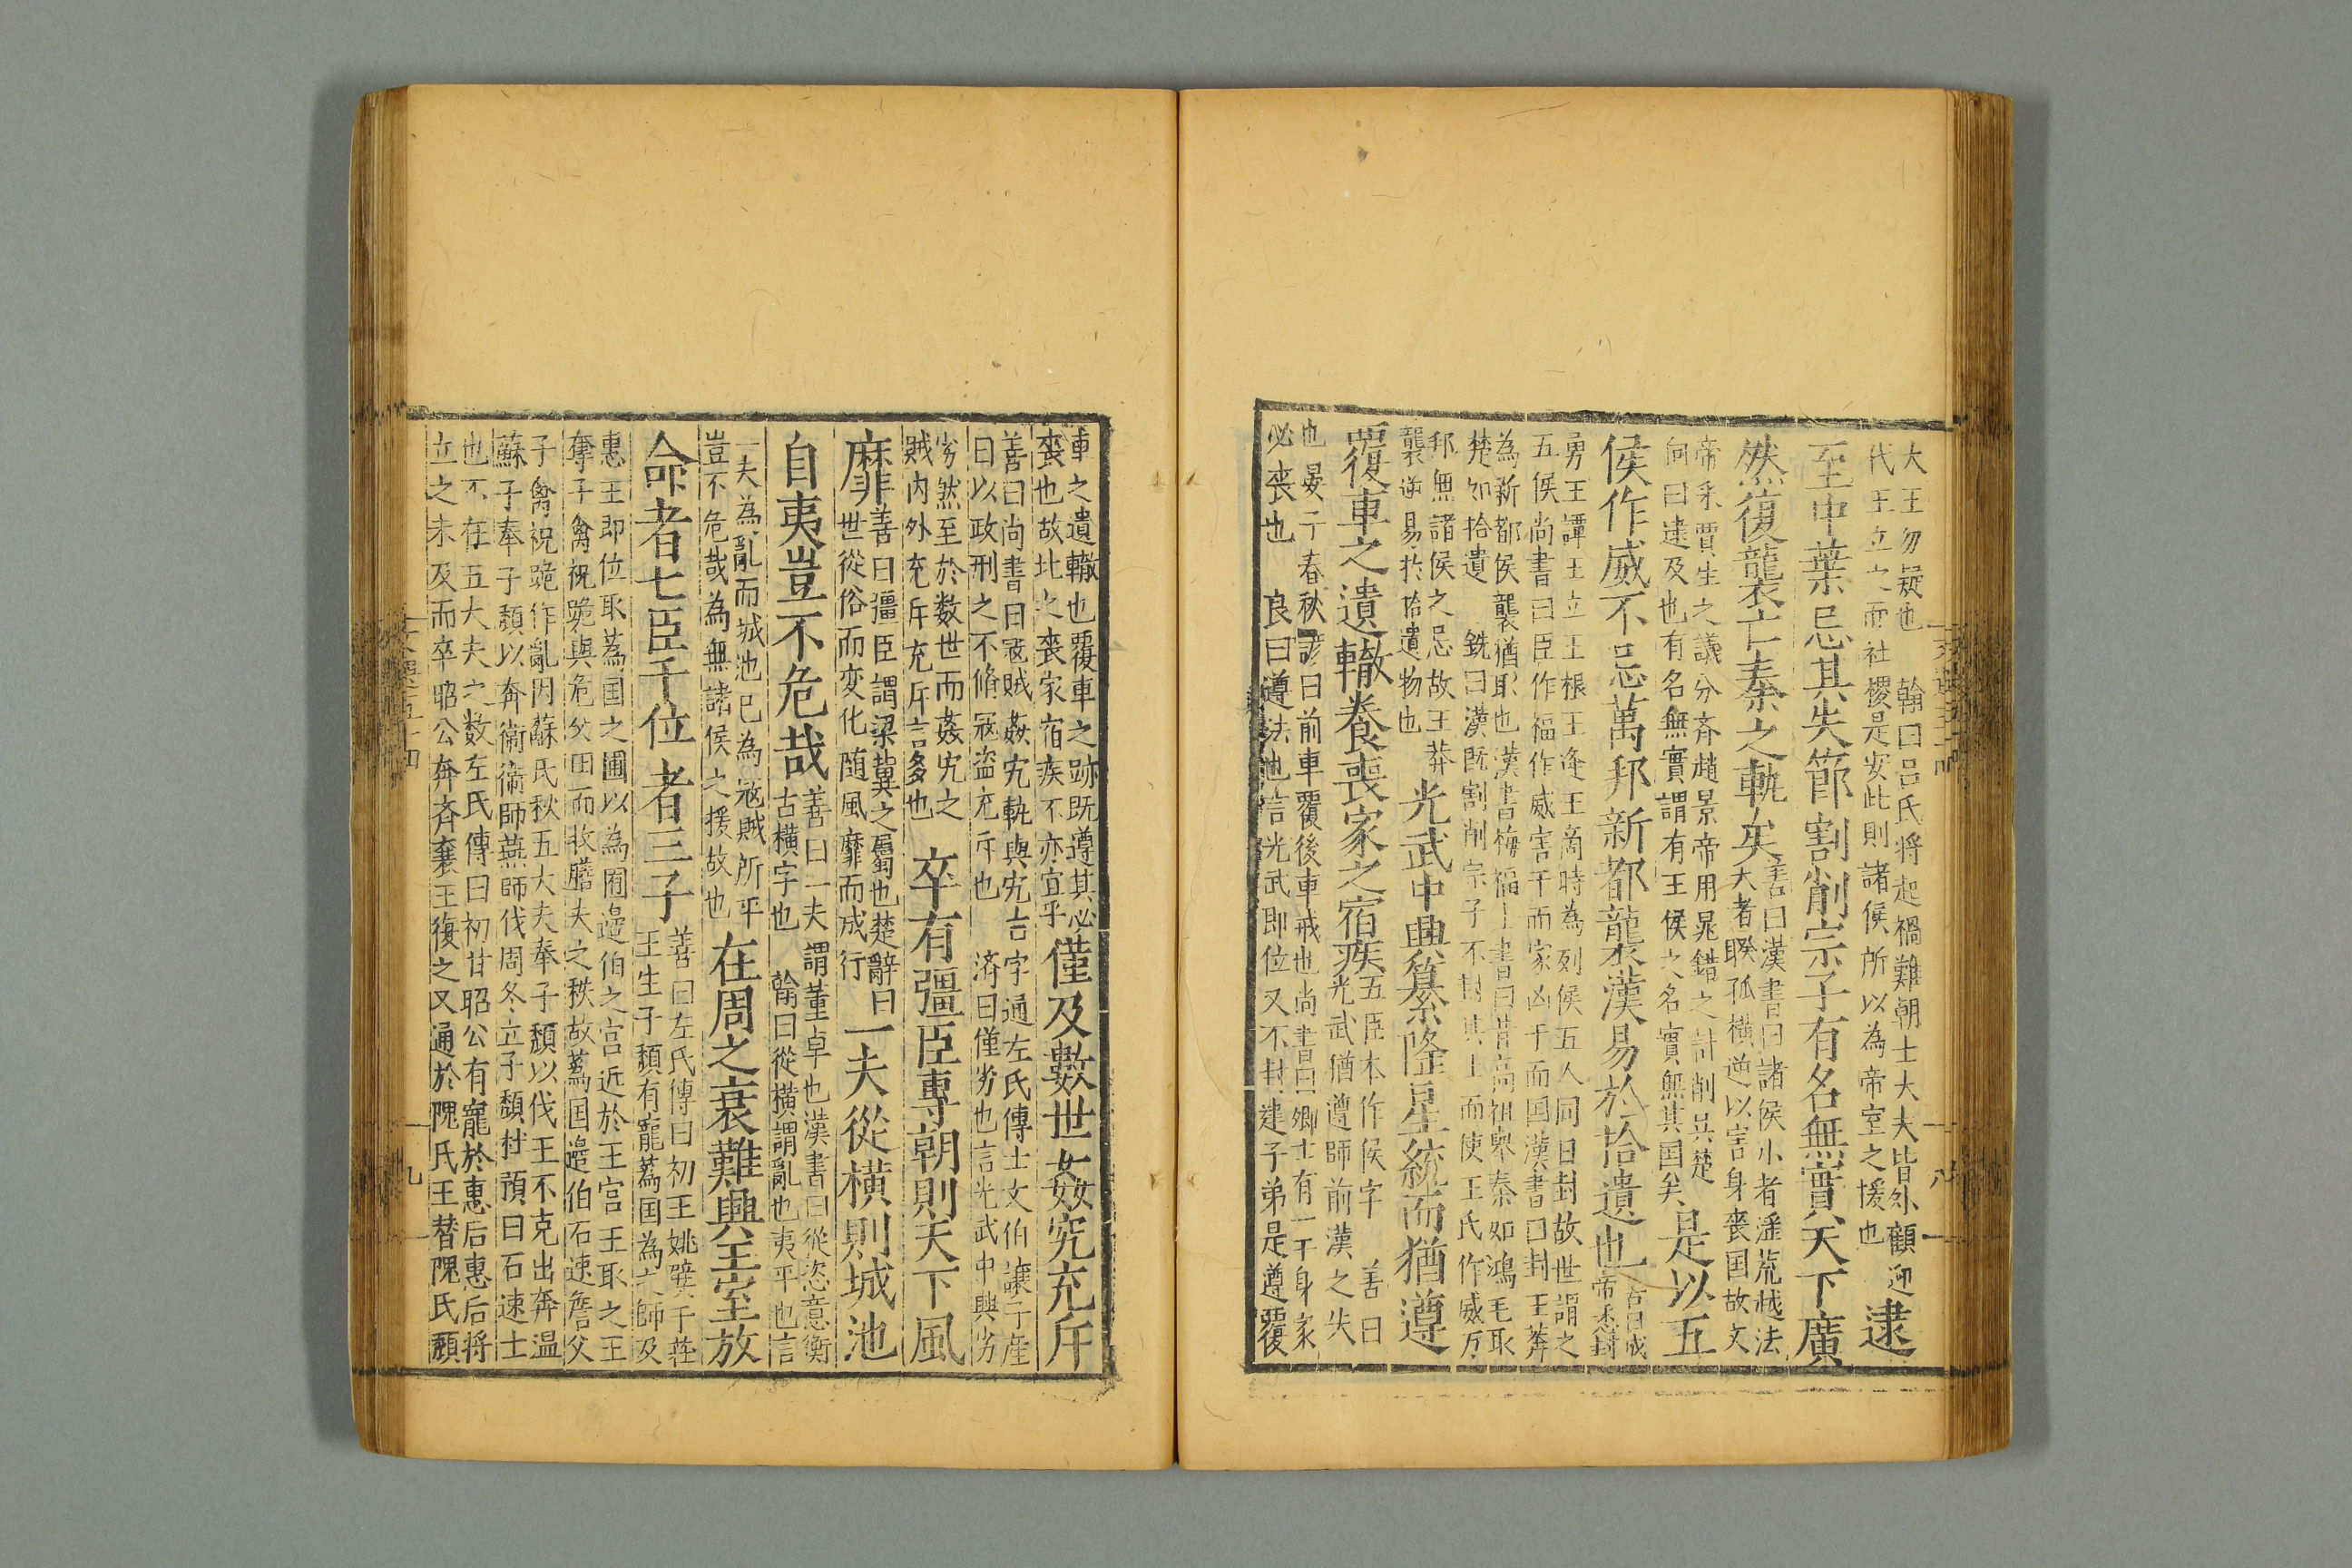 大王勿疑也　翰曰呂氏将起禍難朝士大夫皆外顧迎
代王立之而社稷是安此則諸侯所以為帝室之援也
逮
至中葉忌其失節割削宗子有名無實天下廣
然復襲亡秦之軌矣
善曰漢書曰諸侯小者淫荒越法
大者睽孤橫逆以害身喪国故文
帝采賈生之議分斉趙景帝用晁錯之計削吴楚
向曰逮及也有名無實謂有王侯之名實無其国矣
是以五
侯作威不忌萬邦新都襲漢易於拾遺也
善曰成
帝悉封
舅王譚王立王根王逢王商時為列侯五人同日封故世謂之
五侯尚書曰臣作福作威害于而家凶于而国漢書曰封王莽
為新都侯襲猶取也漢書梅福上書曰昔高祖舉秦如鴻毛取
楚如拾遺　銑曰漢既割削宗子不封其土而使王氏作威万
邦無諸侯之忌故王莽
襲逆易於拾遺物也
光武中興纂隆皇統而猶遵
覆車之遺轍養喪家之宿疾
五臣本作侯字　善曰
光武猶遵師前漢之失
也晏子春秋諺曰前車覆後車戒也尚書曰卿士有一于身家
必喪也　良曰遵法也言光武即位又不封建子弟是遵覆
車之遺轍也覆車之跡既遵其必
喪也故北之喪家宿疾不亦宜乎
僅及數世姦宄充斥
善曰尚書曰寇賊姦宄軌與宄古字通左氏傳士文伯讓子産
曰以政刑之不脩寇盗充斥也　済曰僅劣也言光武中興劣
劣然至於数世而姦宄之
賊内外充斥充斥言多也
卒有彊臣專朝則天下風
靡
善曰彊臣謂梁冀之屬也楚辭曰
世從俗而変化随風靡而成行
一夫從橫則城池
自夷豈不危哉
善曰一夫謂董卓也漢書曰從恣意衡
古橫字也　翰曰從橫謂亂也夷平也言
一夫為亂而城池已為寇賊所平
豈不危哉為無諸侯之援故也
在周之衰難興王室放
命者七臣干位者三子
善曰左氏傳曰初王姚嬖于莊
王生子頹有寵蒍国為之師及
惠王即位取蒍国之圃以為囿邉伯之宫近於王宫王取之王
奪子禽祝跪與危父田而收膳夫之秩故蒍国邉伯石速詹父
子禽祝跪作亂因蘇氏秋五大夫奉子頹以伐王不克出奔温
蘇子奉子頹以奔衛衛師燕師伐周冬立子頹杜預曰石速士
也不在五大夫之数左氏傳曰初甘昭公有寵於惠后惠后将
立之未及而卒昭公奔斉襄王復之又通於隗氏王替隗氏頹